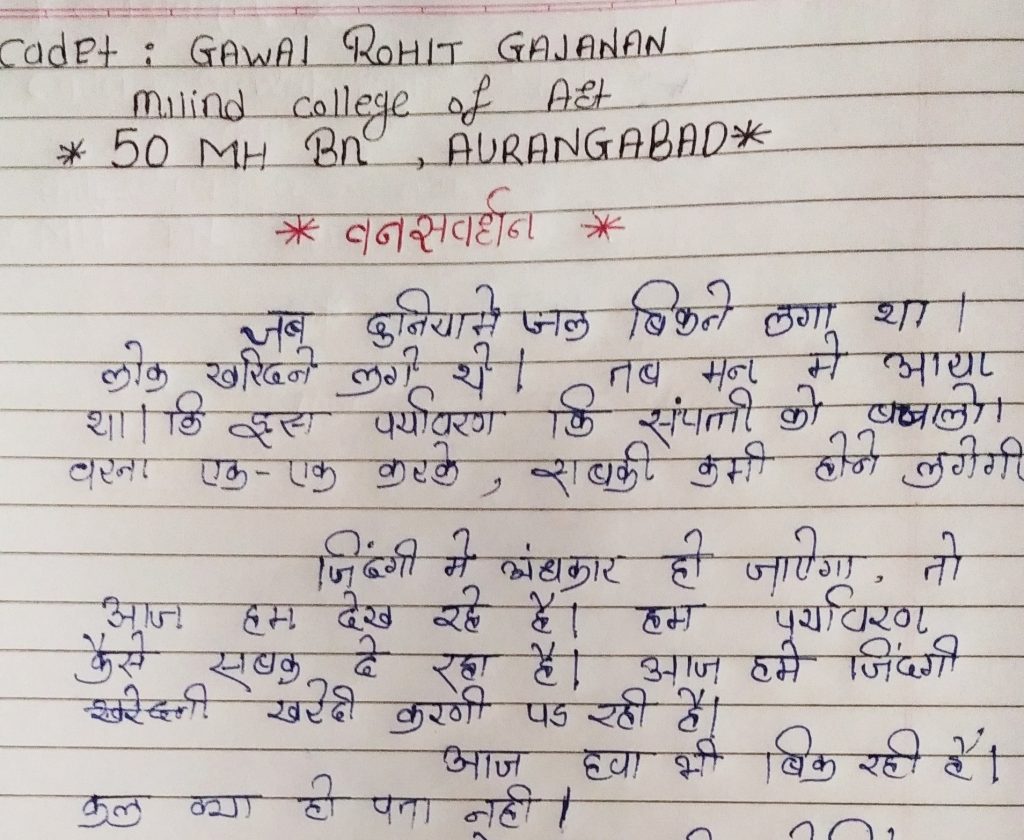 Cadet : GAWAI ROHIT GAJANAN
Milind college of Art
* 50 MH Bn , AURANGABAD *
* वनसवर्धन *
जब दुनियामे जल बिकने लगा था ।
लोक खरिदने लगे थे । तब मन मे आया
था । कि इस पर्यावरण कि संपत्ती को बचालो ।
वरना एक-एक करके , सबकी कमी होने लगेगी
जिंदगी मे अंधकार हो जाऐगा , तो
आज हम देख रहे है । हम पर्यावरण
कैसे सबक दे रहा है । आज हमे जिंदगी
खरेदी करणी पड रही है ।
आज हवा भी बिक रही है ।
कल क्या हो पता नही ।